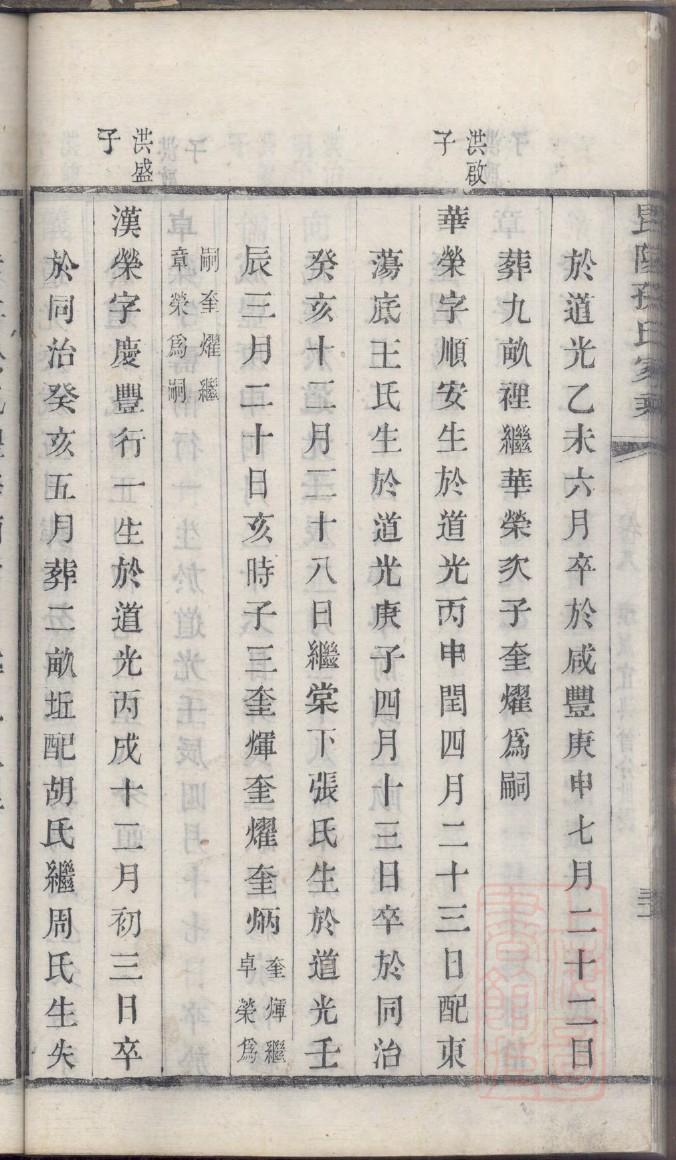 毘陵孫氏家乘
於道光乙未六月卒於咸豐庚申七月二十二日
葬九畝裡繼華榮次子奎燿爲嗣
洪啟子
華榮字順安生於道光丙申閏四月二十三日配東
蕩底王氏生於道光庚子四月十三日卒於同治
癸亥十二月二十八日繼棠下張氏生於道光壬
辰三月二十日亥時子三奎煇奎燿奎炳奎煇繼卓榮爲
嗣奎燿繼章榮爲嗣
洪盛子
漢榮字慶豐行一生於道光丙戌十二月初三日卒
於同治癸亥五月葬二畝坵配胡氏繼周氏生失